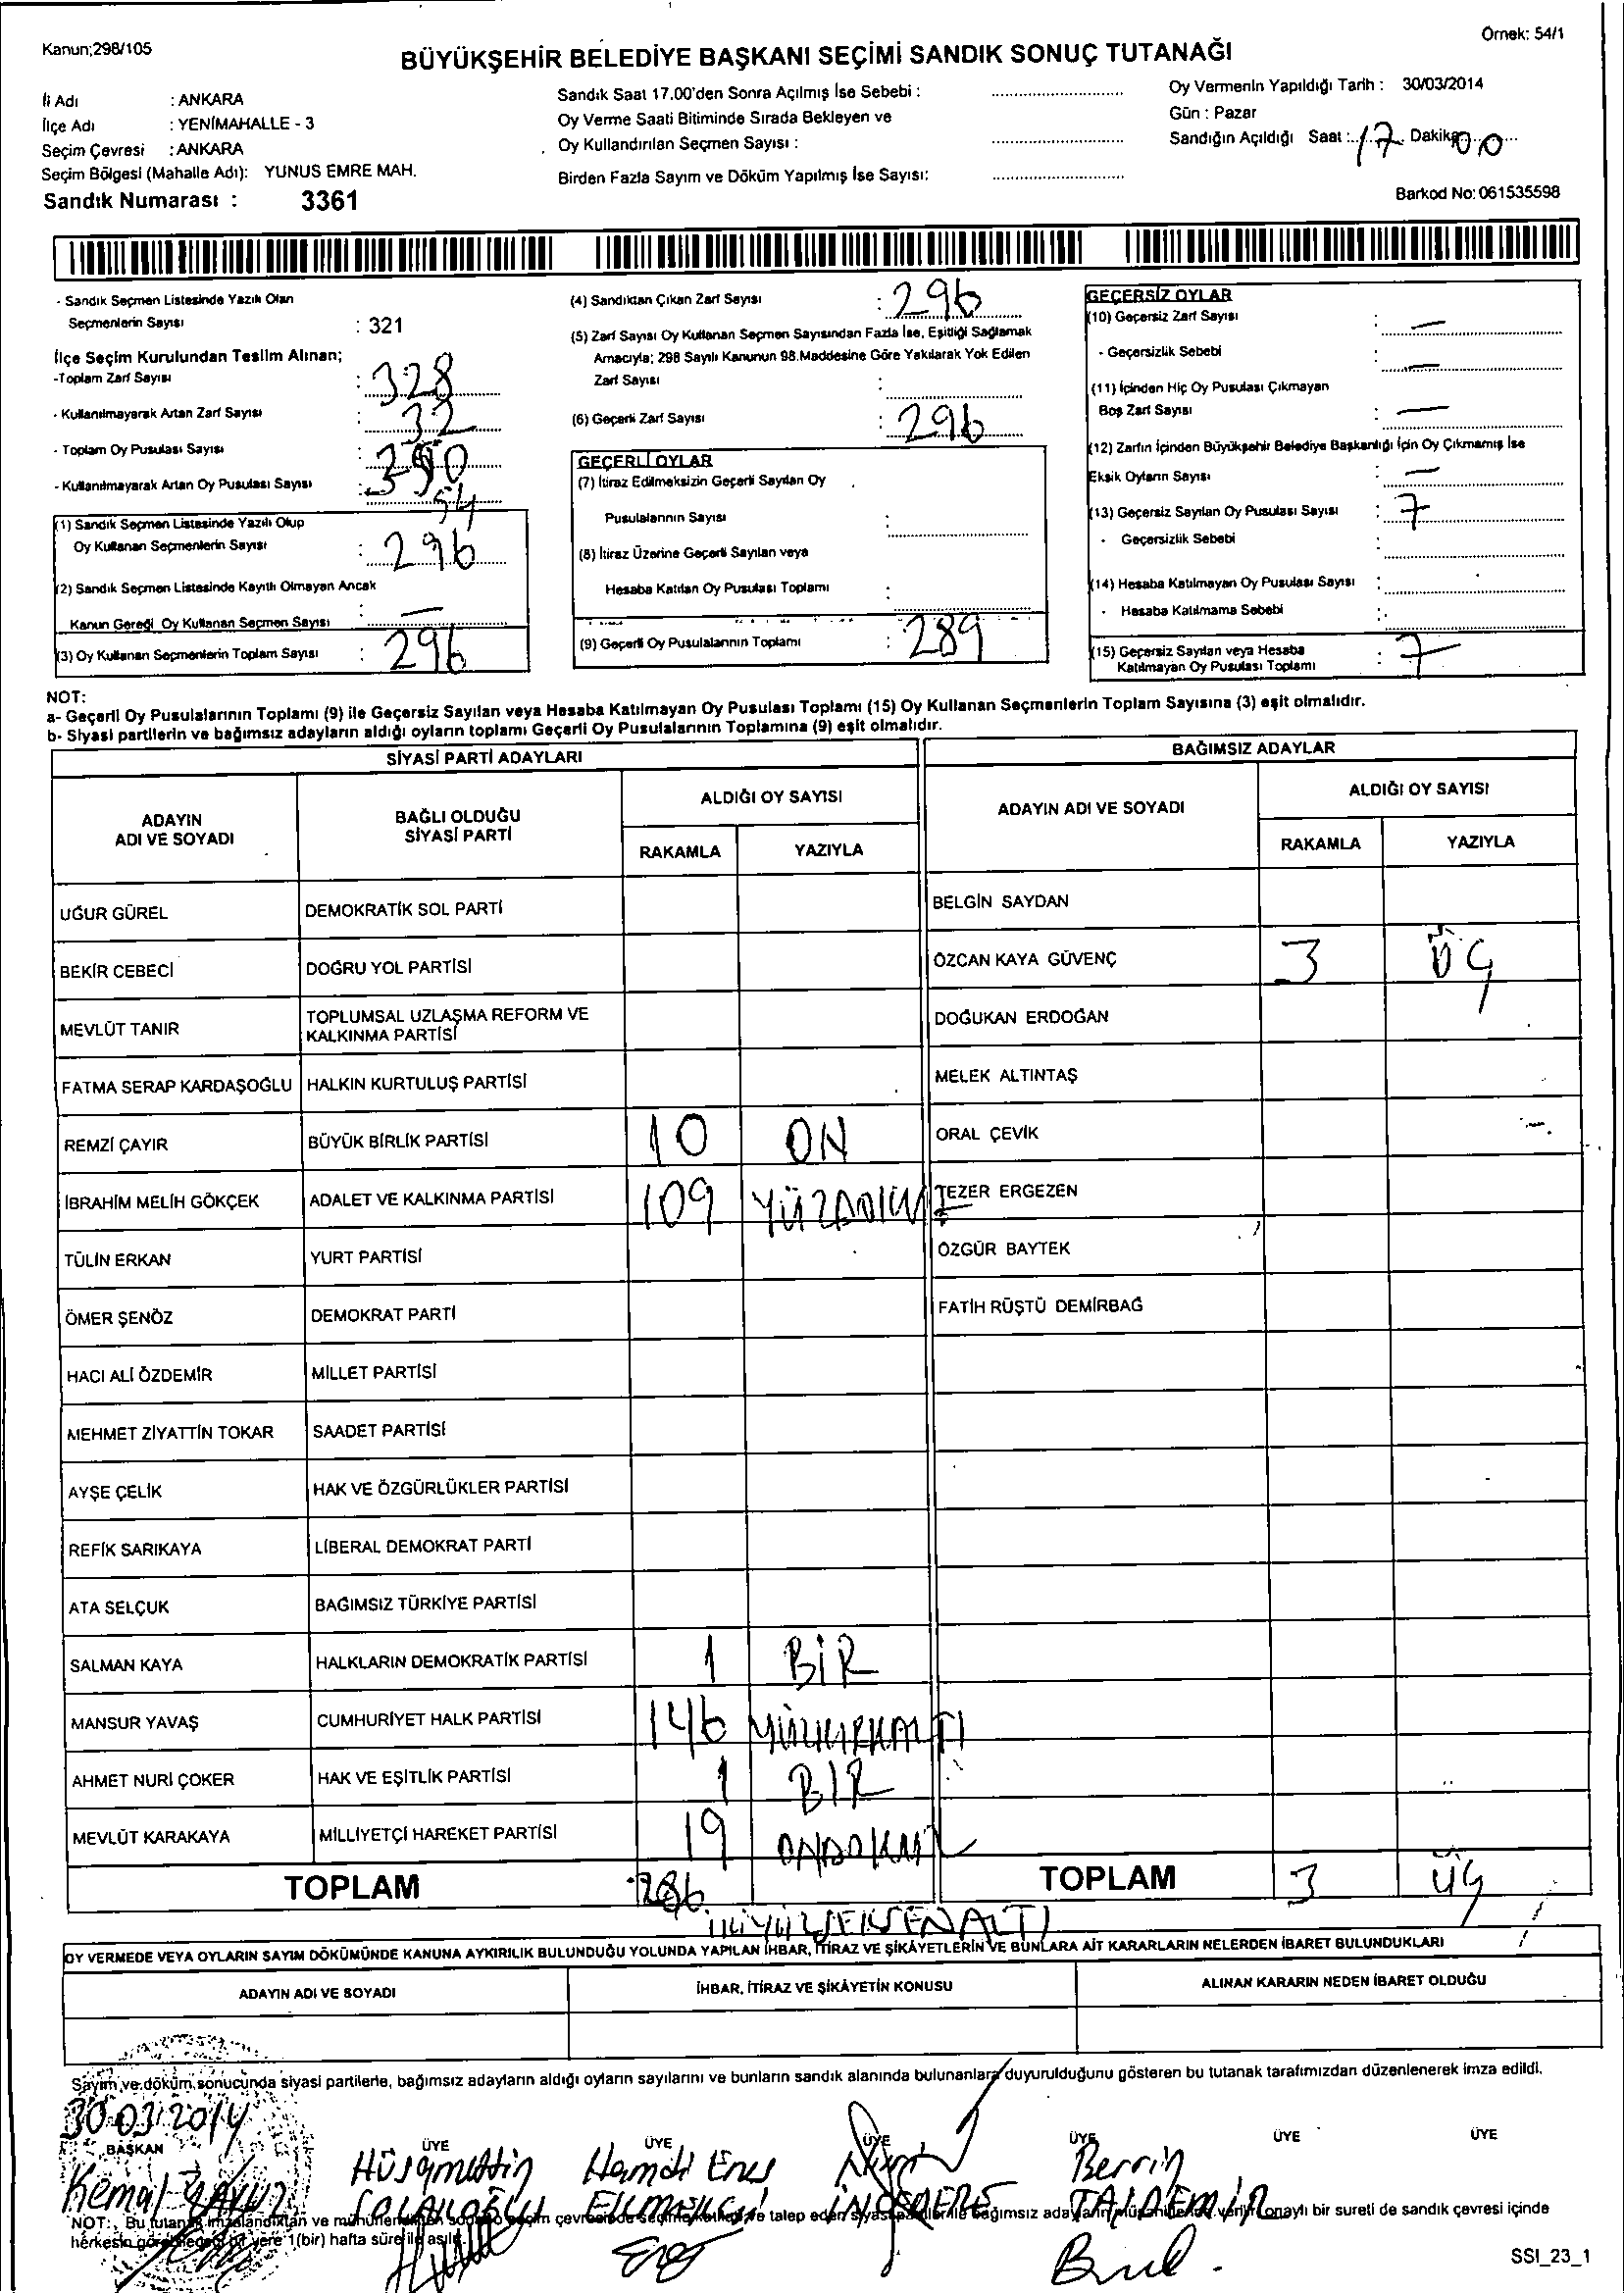 Kanun;298/105
Örnek: 54/1
BÜYÜKŞEHİR BELEDİYE BAŞKANI SEÇİMİ SANDIK SONUÇ TUTANAĞI
İl Adı : ANKARA
İlçe Adı : YENİMAHALLE - 3
Seçim Çevresi : ANKARA
Seçim Bölgesi (Mahalle Adı): YUNUS EMRE MAH.
Sandık Numarası : 3361
Sandık Saat 17.00'den Sonra Açılmış İse Sebebi :
Oy Verme Saati Bitiminde Sırada Bekleyen ve
Oy Kullandırılan Seçmen Sayısı :
Birden Fazla Sayım ve Döküm Yapılmış İse Sayısı:
Oy Vermenin Yapıldığı Tarih : 30/03/2014
Gün : Pazar
Sandığın Açıldığı Saat : 17 Dakika 00
Barkod No: 061535598
- Sandık Seçmen Listesinde Yazılı Olan
Seçmenlerin Sayısı : 321
İlçe Seçim Kurulundan Teslim Alınan;
-Toplam Zarf Sayısı : 328
- Kullanılmayarak Artan Zarf Sayısı : 32
- Toplam Oy Pusulası Sayısı : 350
- Kullanılmayarak Artan Oy Pusulası Sayısı : 54
(1) Sandık Seçmen Listesinde Yazılı Olup
Oy Kullanan Seçmenlerin Sayısı : 296
(2) Sandık Seçmen Listesinde Kayıtlı Olmayan Ancak
Kanun Gereği Oy Kullanan Seçmen Sayısı : —
(3) Oy Kullanan Seçmenlerin Toplam Sayısı : 296
(4) Sandıktan Çıkan Zarf Sayısı : 296
(5) Zarf Sayısı Oy Kullanan Seçmen Sayısından Fazla İse, Eşitliği Sağlamak
Amacıyla; 298 Sayılı Kanunun 98.Maddesine Göre Yakılarak Yok Edilen
Zarf Sayısı :
(6) Geçerli Zarf Sayısı : 296
GEÇERLİ OYLAR
(7) İtiraz Edilmeksizin Geçerli Sayılan Oy
Pusulalarının Sayısı :
(8) İtiraz Üzerine Geçerli Sayılan veya
Hesaba Katılan Oy Pusulası Toplamı :
(9) Geçerli Oy Pusulalarının Toplamı : 289
GEÇERSİZ OYLAR
(10) Geçersiz Zarf Sayısı : —
- Geçersizlik Sebebi : —
(11) İçinden Hiç Oy Pusulası Çıkmayan
Boş Zarf Sayısı : —
(12) Zarfın İçinden Büyükşehir Belediye Başkanlığı İçin Oy Çıkmamış İse
Eksik Oyların Sayısı : —
(13) Geçersiz Sayılan Oy Pusulası Sayısı : 7
- Geçersizlik Sebebi :
(14) Hesaba Katılmayan Oy Pusulası Sayısı :
- Hesaba Katılmama Sebebi :
(15) Geçersiz Sayılan veya Hesaba
Katılmayan Oy Pusulası Toplamı : 7
NOT:
a- Geçerli Oy Pusulalarının Toplamı (9) ile Geçersiz Sayılan veya Hesaba Katılmayan Oy Pusulası Toplamı (15) Oy Kullanan Seçmenlerin Toplam Sayısına (3) eşit olmalıdır.
b- Siyasi partilerin ve bağımsız adayların aldığı oyların toplamı Geçerli Oy Pusulalarının Toplamına (9) eşit olmalıdır.
SİYASİ PARTİ ADAYLARI
BAĞIMSIZ ADAYLAR
ADAYIN ADI VE SOYADI
BAĞLI OLDUĞU SİYASİ PARTİ
ALDIĞI OY SAYISI
RAKAMLA YAZIYLA
ADAYIN ADI VE SOYADI
ALDIĞI OY SAYISI
RAKAMLA YAZIYLA
UĞUR GÜREL DEMOKRATİK SOL PARTİ BELGİN SAYDAN
BEKİR CEBECİ DOĞRU YOL PARTİSİ ÖZCAN KAYA GÜVENÇ 3 ÜÇ
MEVLÜT TANIR TOPLUMSAL UZLAŞMA REFORM VE KALKINMA PARTİSİ DOĞUKAN ERDOĞAN
FATMA SERAP KARDAŞOĞLU HALKIN KURTULUŞ PARTİSİ MELEK ALTINTAŞ
REMZİ ÇAYIR BÜYÜK BİRLİK PARTİSİ 10 ON ORAL ÇEVİK
İBRAHİM MELİH GÖKÇEK ADALET VE KALKINMA PARTİSİ 109 TEZER ERGEZEN
TÜLİN ERKAN YURT PARTİSİ ÖZGÜR BAYTEK
ÖMER ŞENÖZ DEMOKRAT PARTİ FATİH RÜŞTÜ DEMİRBAĞ
HACI ALİ ÖZDEMİR MİLLET PARTİSİ
MEHMET ZİYATTİN TOKAR SAADET PARTİSİ
AYŞE ÇELİK HAK VE ÖZGÜRLÜKLER PARTİSİ
REFİK SARIKAYA LİBERAL DEMOKRAT PARTİ
ATA SELÇUK BAĞIMSIZ TÜRKİYE PARTİSİ
SALMAN KAYA HALKLARIN DEMOKRATİK PARTİSİ 1 BİR
MANSUR YAVAŞ CUMHURİYET HALK PARTİSİ 146
AHMET NURİ ÇOKER HAK VE EŞİTLİK PARTİSİ 1 BİR
MEVLÜT KARAKAYA MİLLİYETÇİ HAREKET PARTİSİ 19 ONDOKUZ
TOPLAM 286 İKİYÜZSEKSENALTI
TOPLAM 3 ÜÇ
OY VERMEDE VEYA OYLARIN SAYIM DÖKÜMÜNDE KANUNA AYKIRILIK BULUNDUĞU YOLUNDA YAPILAN İHBAR, İTİRAZ VE ŞİKÂYETLERİN VE BUNLARA AİT KARARLARIN NELERDEN İBARET BULUNDUKLARI
ADAYIN ADI VE SOYADI İHBAR, İTİRAZ VE ŞİKÂYETİN KONUSU ALINAN KARARIN NEDEN İBARET OLDUĞU
Sayım ve döküm sonucunda siyasi partilerle, bağımsız adayların aldığı oyların sayılarını ve bunların sandık alanında bulunanlara duyurulduğunu gösteren bu tutanak tarafımızdan düzenlenerek imza edildi.
30.03.2014
BAŞKAN ÜYE ÜYE ÜYE ÜYE ÜYE ÜYE
Kemal Hüsamettin Hamdi Enes Berrin
NOT: Bu tutanak imzalandıktan ve talep eden bağımsız onaylı bir sureti de sandık çevresi içinde
herkesin 1(bir) hafta süre ile asılır.
SSI_23_1